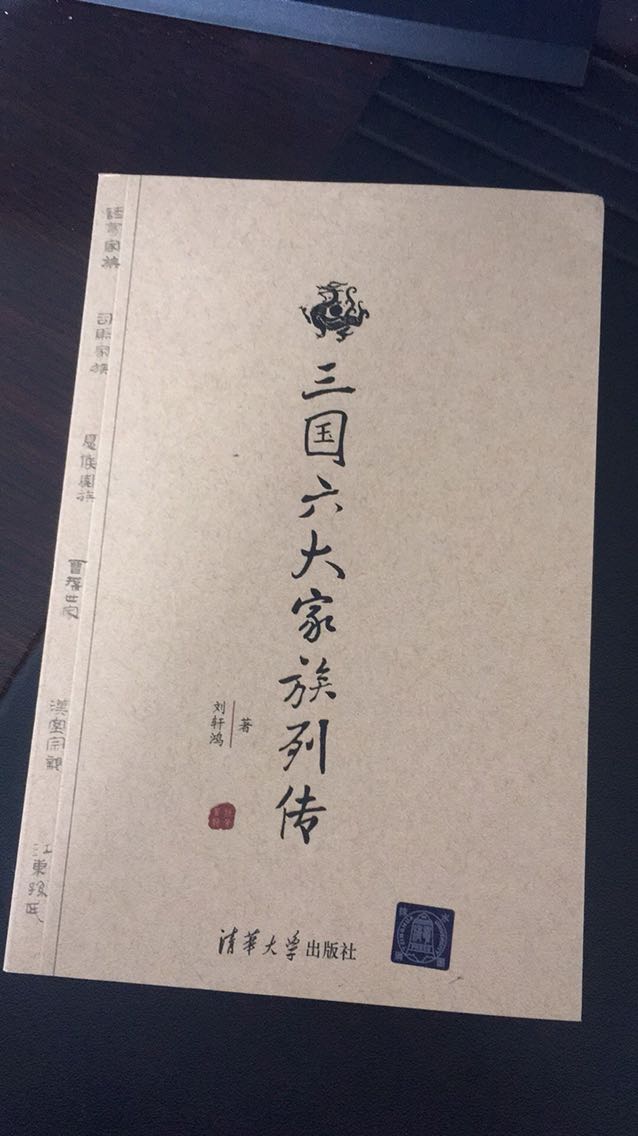 三国六大家族列传
刘轩鸿
著
清华大学出版社
諸葛家族
司馬家族
夏侯家族
曹操世家
漢室宗親
江東孫氏